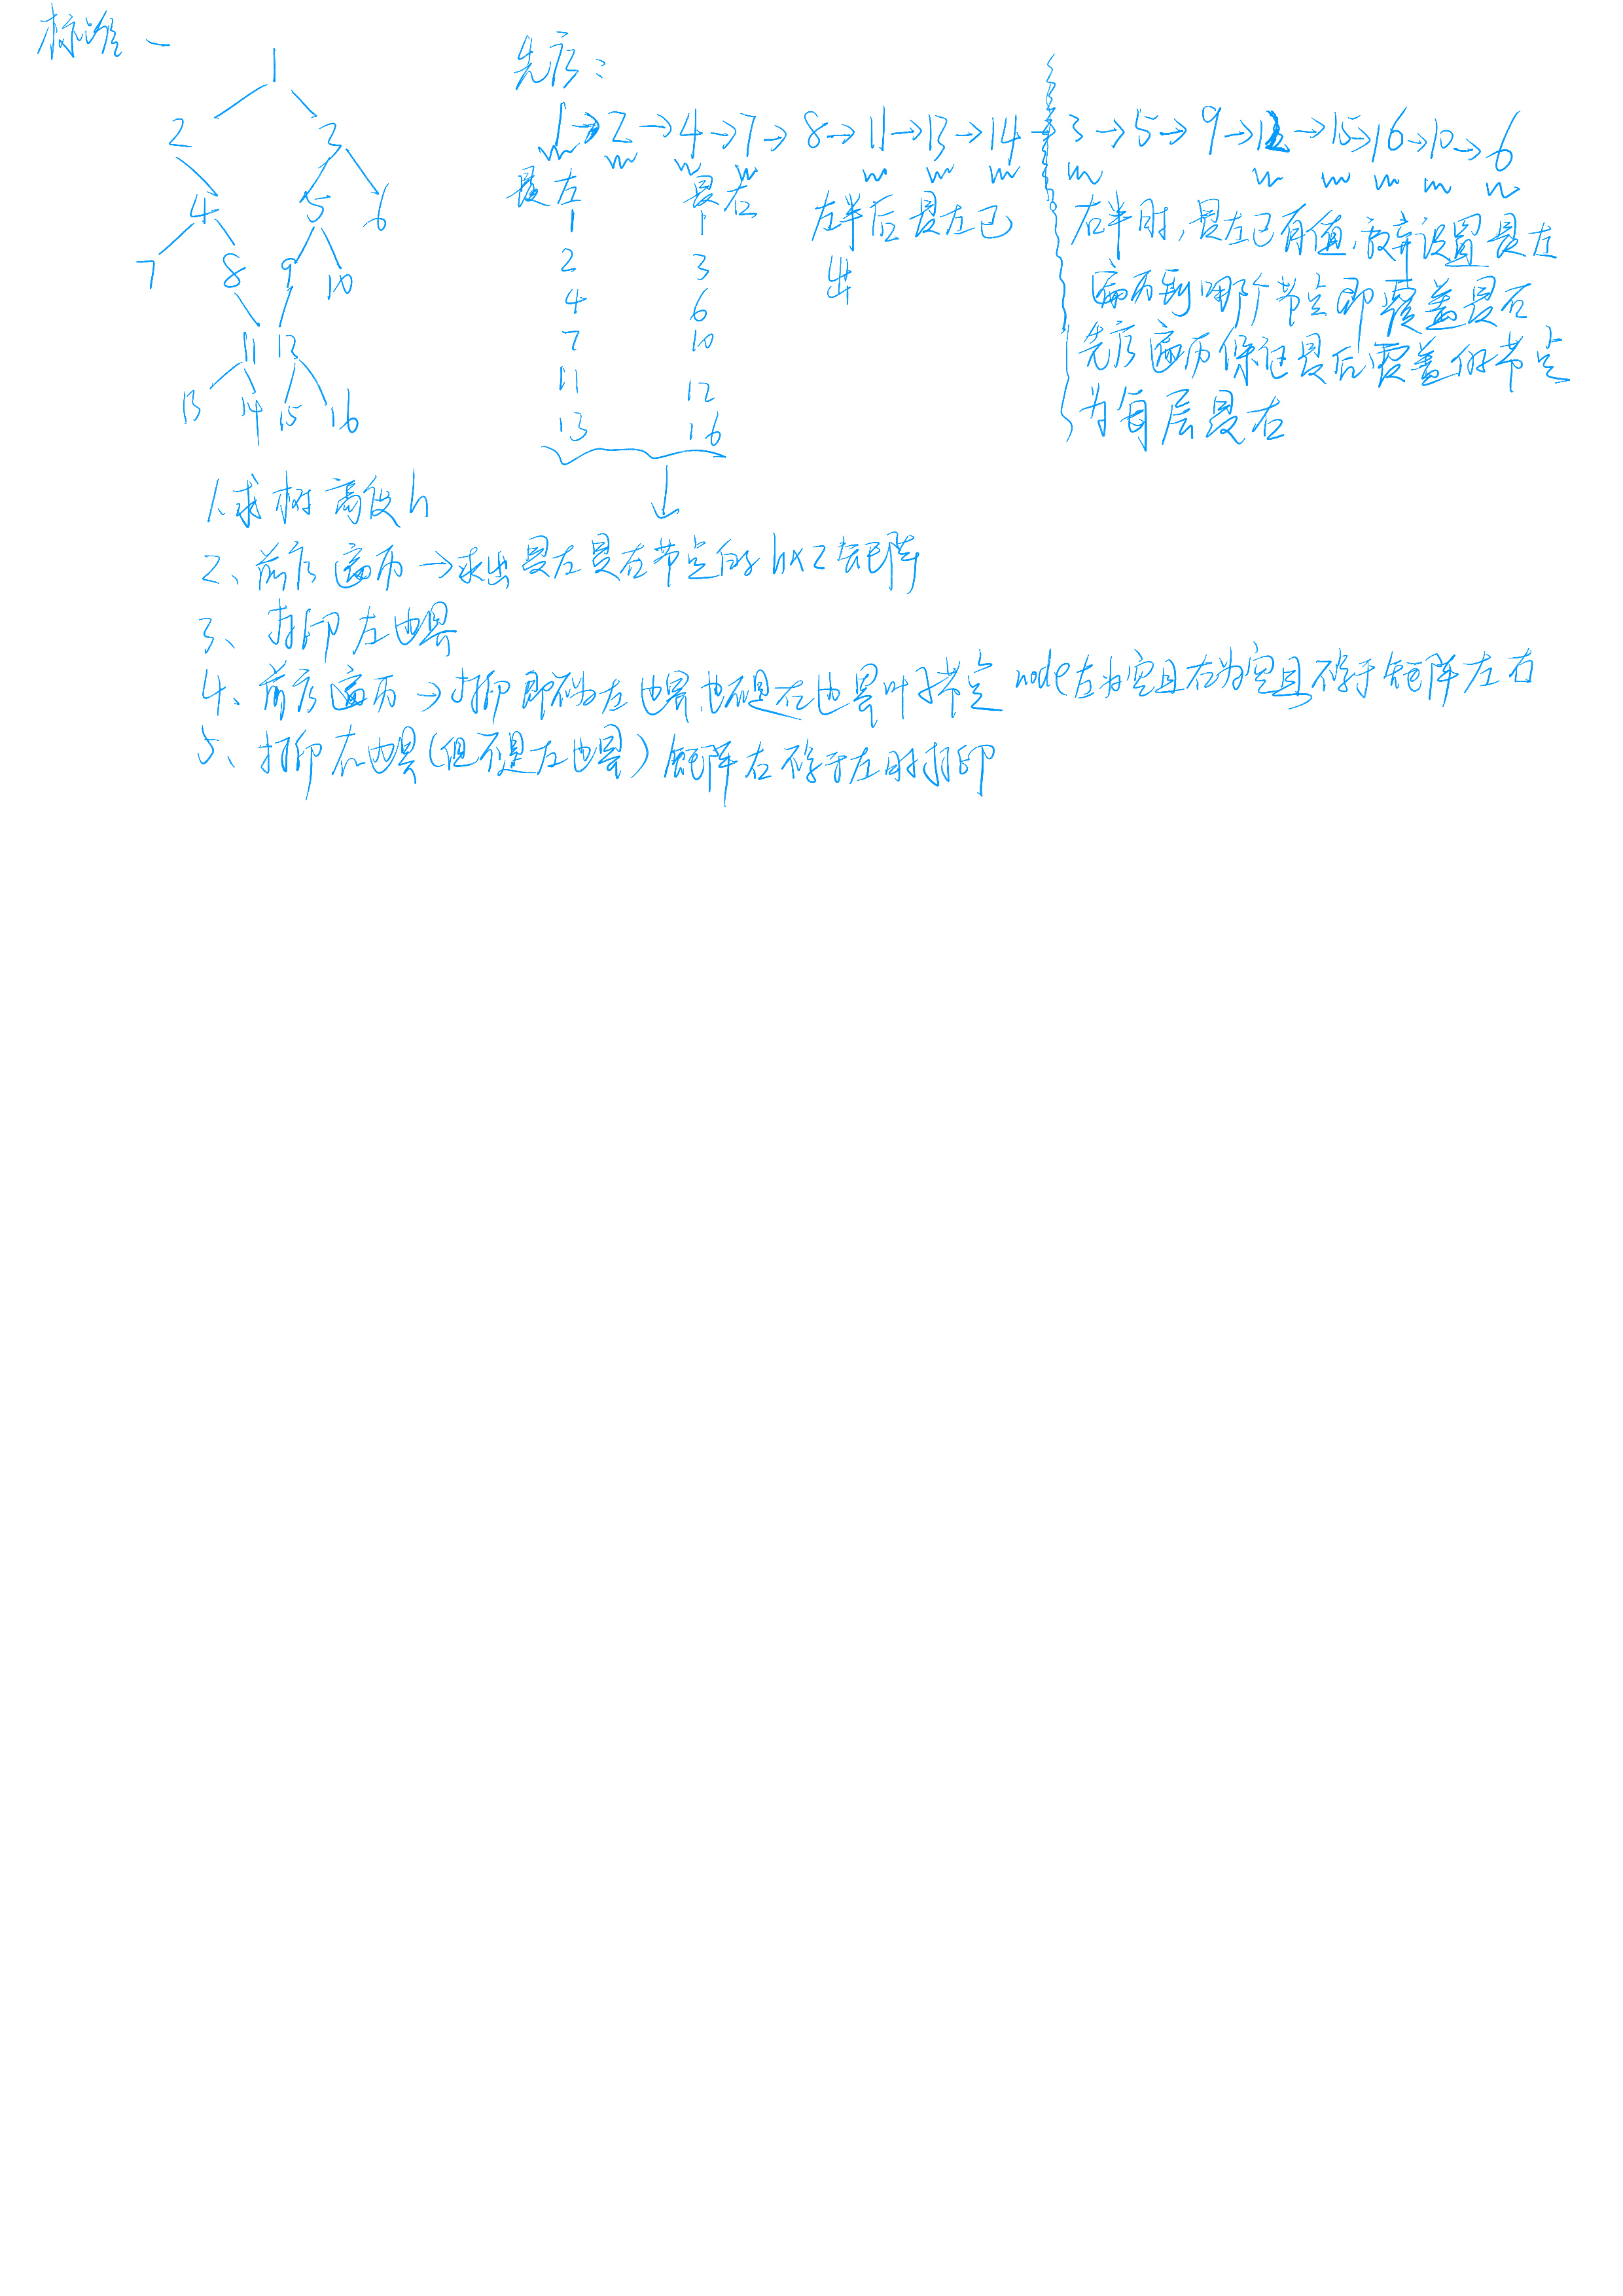 标准一
1
2 3
4 5 6
7 8 9 10
11 12
13 14 15 16
先序：
1→2→4→7→8→11→13→14→3→5→9→12→15→16→10→6
最左 最右
1 1
2 3
4 6
7 10
11 12
13 16
左半后最左已
出
右半时，最左已有值，放弃设置最左
遍历到哪个节点即覆盖最右
先序遍历保证最后覆盖的节点
为每层最右
1、求树高度h
2、前序遍历→求出最左最右节点的h×2矩阵
3、打印左边界
4、前序遍历→打印即不为左边界也不是右边界叶子节点 node左为空且右为空且不等于矩阵左右
5、打印右边界(但不是左边界) 矩阵右不等于左时打印